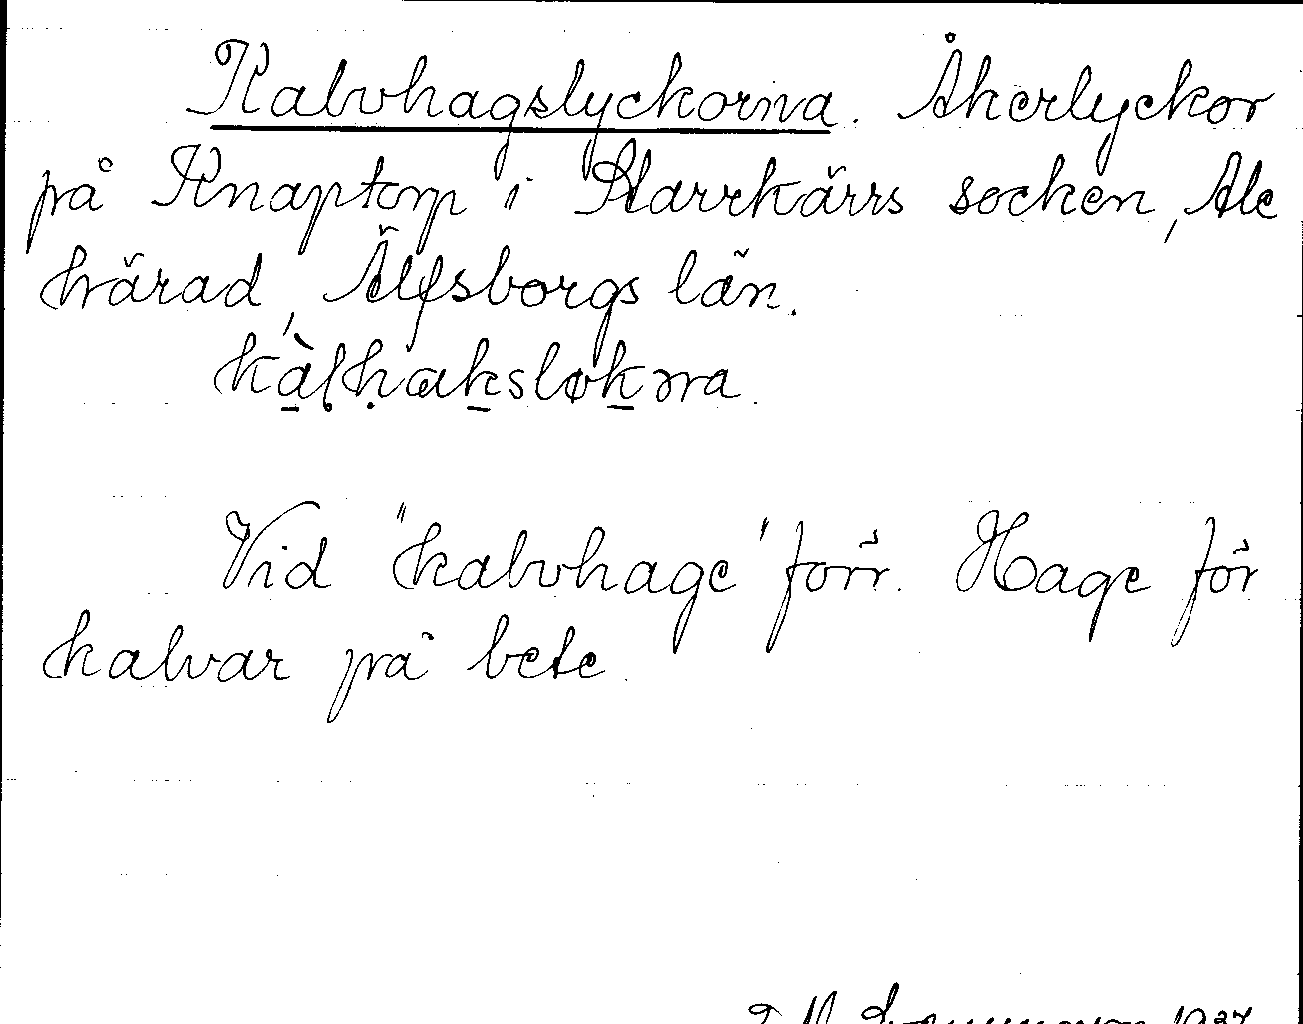 Kalvhagslyckorna. Åkerlyckor
på Knaptorp i Starrkärrs socken, Ale
härad, Älfsborgs län.
kàlhaksløkṇa.

Vid "kalvhage" förr. Hage för
kalvar på bete.
1937